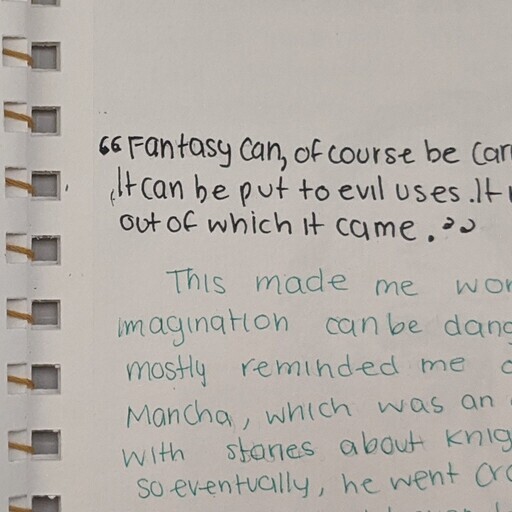 “Fantasy can, of course be car
It can be put to evil uses. It
out of which it came.”
This made me wor
imagination can be dang
mostly reminded me
Mancha, which was an
with stories about knig
so eventually, he went cra